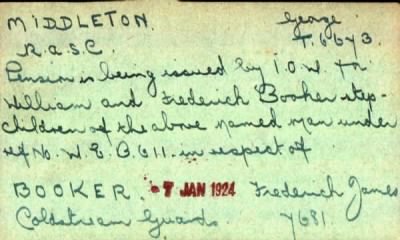 MIDDLETON. George
R.A.S.C. T.6673.
Pension is being issued by I.O.W. to
William and Frederick Booker step-
children of the above named man under
ref No. W.E.B.611. in respect of
BOOKER. -7 JAN 1924 Frederich James
Coldstream Guards. 7681.